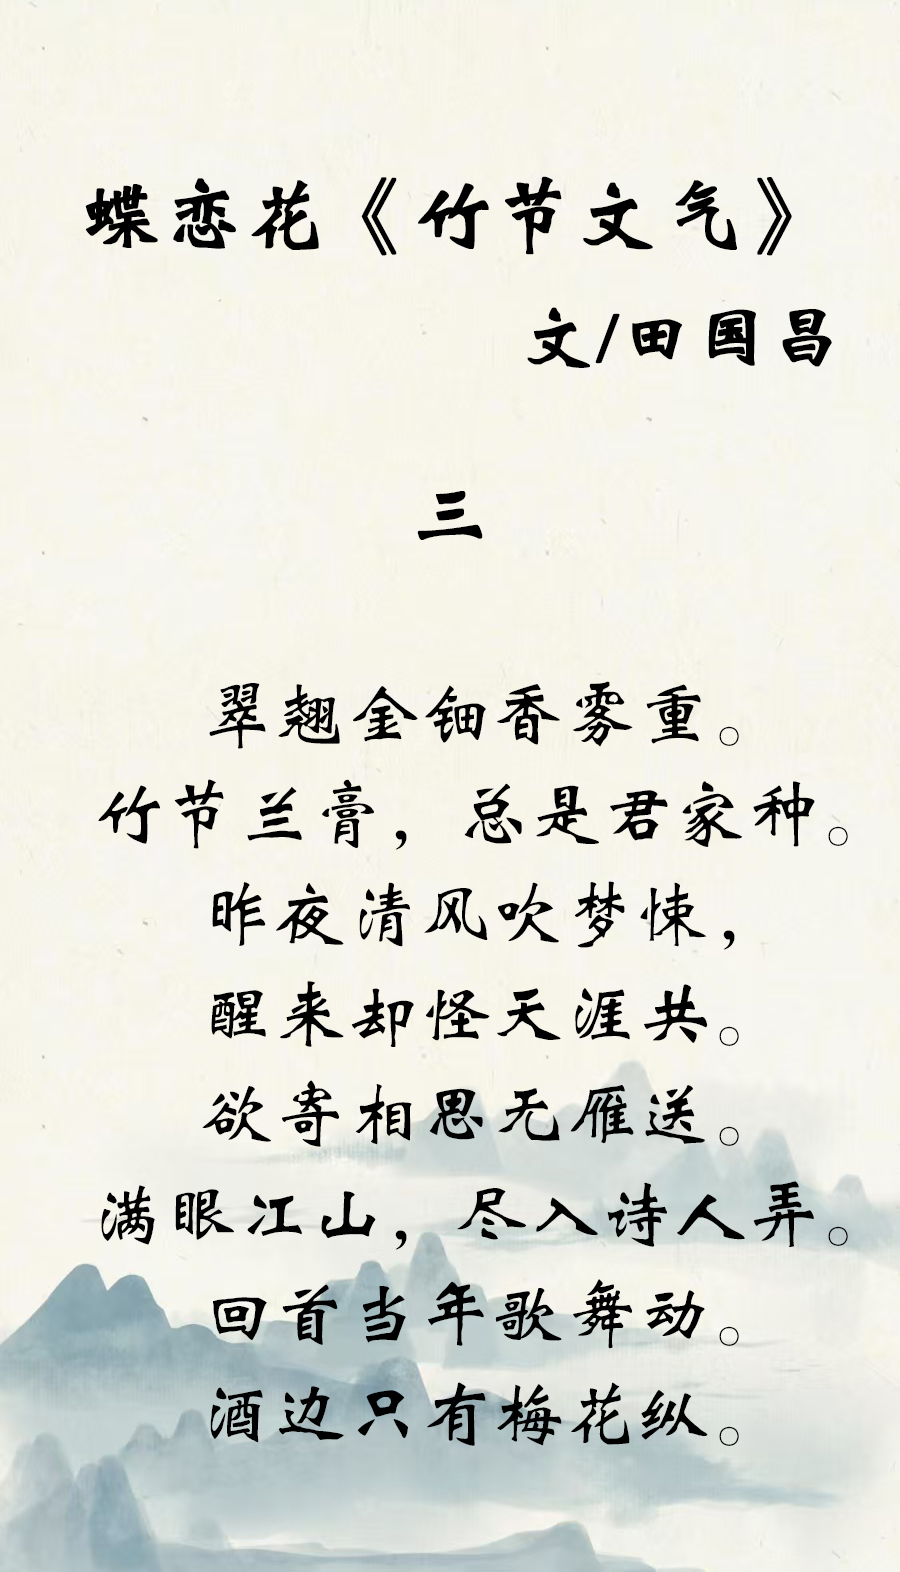 蝶恋花《竹节文气》
文/田国昌
三
翠翘金钿香雾重。
竹节兰膏，总是君家种。
昨夜清风吹梦悚，
醒来却怪天涯共。
欲寄相思无雁送。
满眼江山，尽入诗人弄。
回首当年歌舞动。
酒边只有梅花纵。